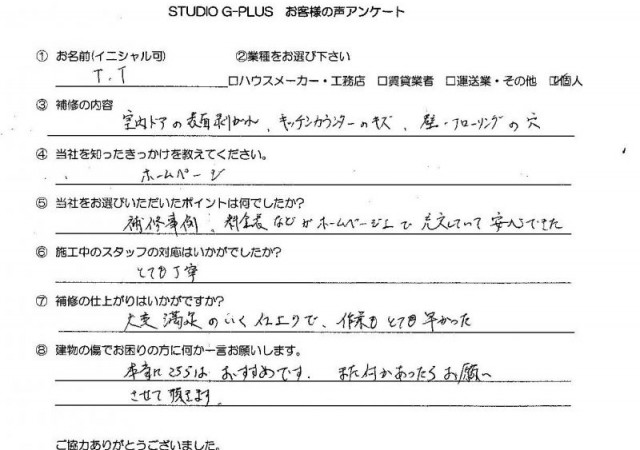 STUDIO G-PLUS お客様の声アンケート
① お名前(イニシャル可) ②業種をお選び下さい
T.T □ハウスメーカー・工務店 □賃貸業者 □運送業・その他 ☑個人
③ 補修の内容
室内ドアの表面剥がれ、キッチンカウンターのキズ、壁・フローリングの穴
④ 当社を知ったきっかけを教えてください。
ホームページ
⑤ 当社をお選びいただいたポイントは何でしたか?
補修事例、料金表などがホームページ上で充実していて安心できた
⑥ 施工中のスタッフの対応はいかがでしたか?
とても丁寧
⑦ 補修の仕上がりはいかがですか?
大変満足のいく仕上りで、作業もとても早かった
⑧ 建物の傷でお困りの方に何か一言お願いします。
本当にこちらはおすすめです。また何かあったらお願い
させて頂きます。
ご協力ありがとうございました。